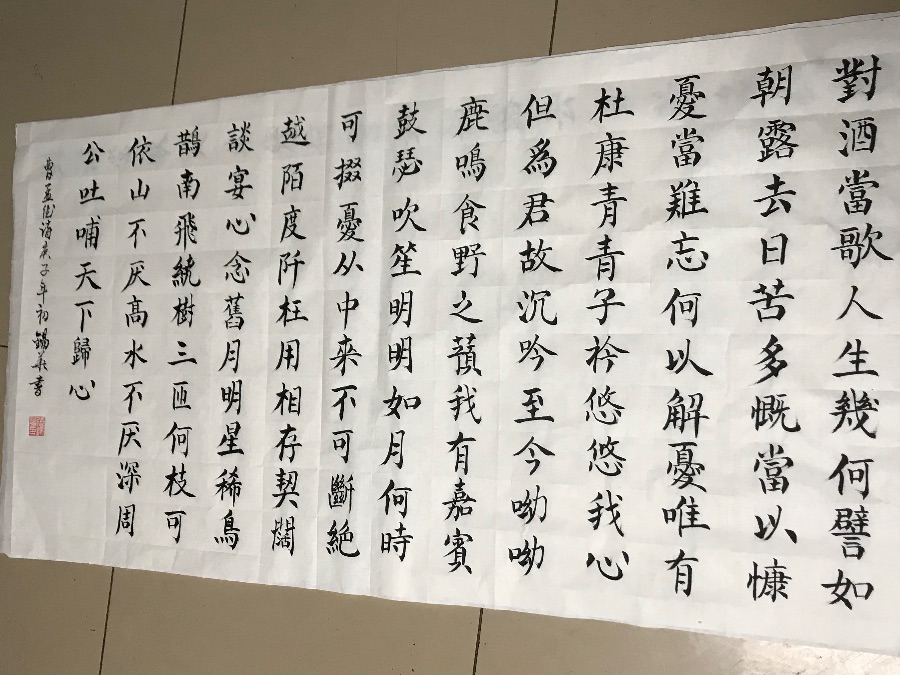 對酒當歌人生幾何譬如
朝露去日苦多慨當以慷
憂當難忘何以解憂唯有
杜康青青子衿悠悠我心
但為君故沉吟至今呦呦
鹿鳴食野之蘋我有嘉賓
鼓瑟吹笙明明如月何時
可掇憂从中来不可斷絶
越陌度阡枉用相存契闊
談宴心念舊月明星稀鳥
鵲南飛繞樹三匝何枝可
依山不厌高水不厌深周
公吐哺天下歸心
曹孟德詩庚子年初錫華書